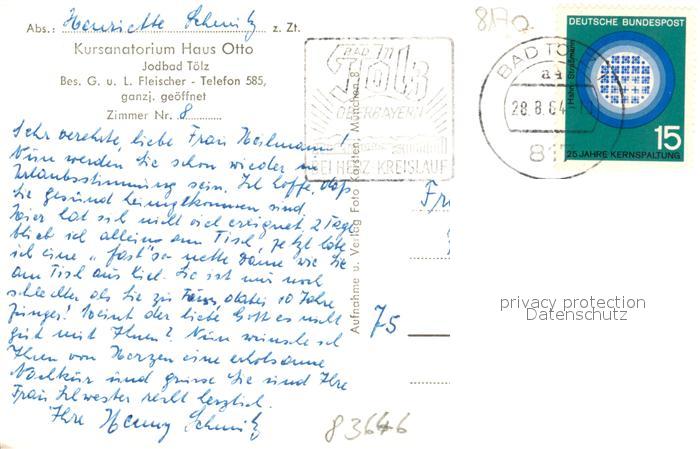 Abs.: Henriette Schmitz z. Zt.
Kursanatorium Haus Otto
Jodbad Tölz
Bes. G. u. L. Fleischer - Telefon 585,
ganzj. geöffnet
Zimmer Nr. 8
Sehr verehrte, liebe Frau Heilmann!
Nun werden Sie schon wieder in
Urlaubsstimmung sein. Ich hoffe, daß
Sie gesund heimgekommen sind.
Hier hat sich nicht viel ereignet, 2 Tage
blieb ich allein am Tisch, jetzt habe
ich eine "fast" so nette Dame wie Sie
am Tisch aus Kiel. Sie ist nur noch
schlechter als Sie zu , dabei 10 Jahre
jünger! Meint der liebe Gott es nicht
gut mit Ihnen? Nun wünsche ich
Ihnen von Herzen eine erholsame
Nachkur und grüsse Sie und Ihre
Frau Schwester recht herzlich.
Ihre Henny Schmitz
Aufnahme u. Verlag Foto Karsten, München 8
BAD
Tölz
OBERBAYERN
BEI HERZ-KREISLAUF
817Q
BAD TÖLZ
aq
28.8.64
817
DEUTSCHE BUNDESPOST
Hahn-Straßmann
15
25 JAHRE KERNSPALTUNG
Fr
75
privacy protection
Datenschutz
83646